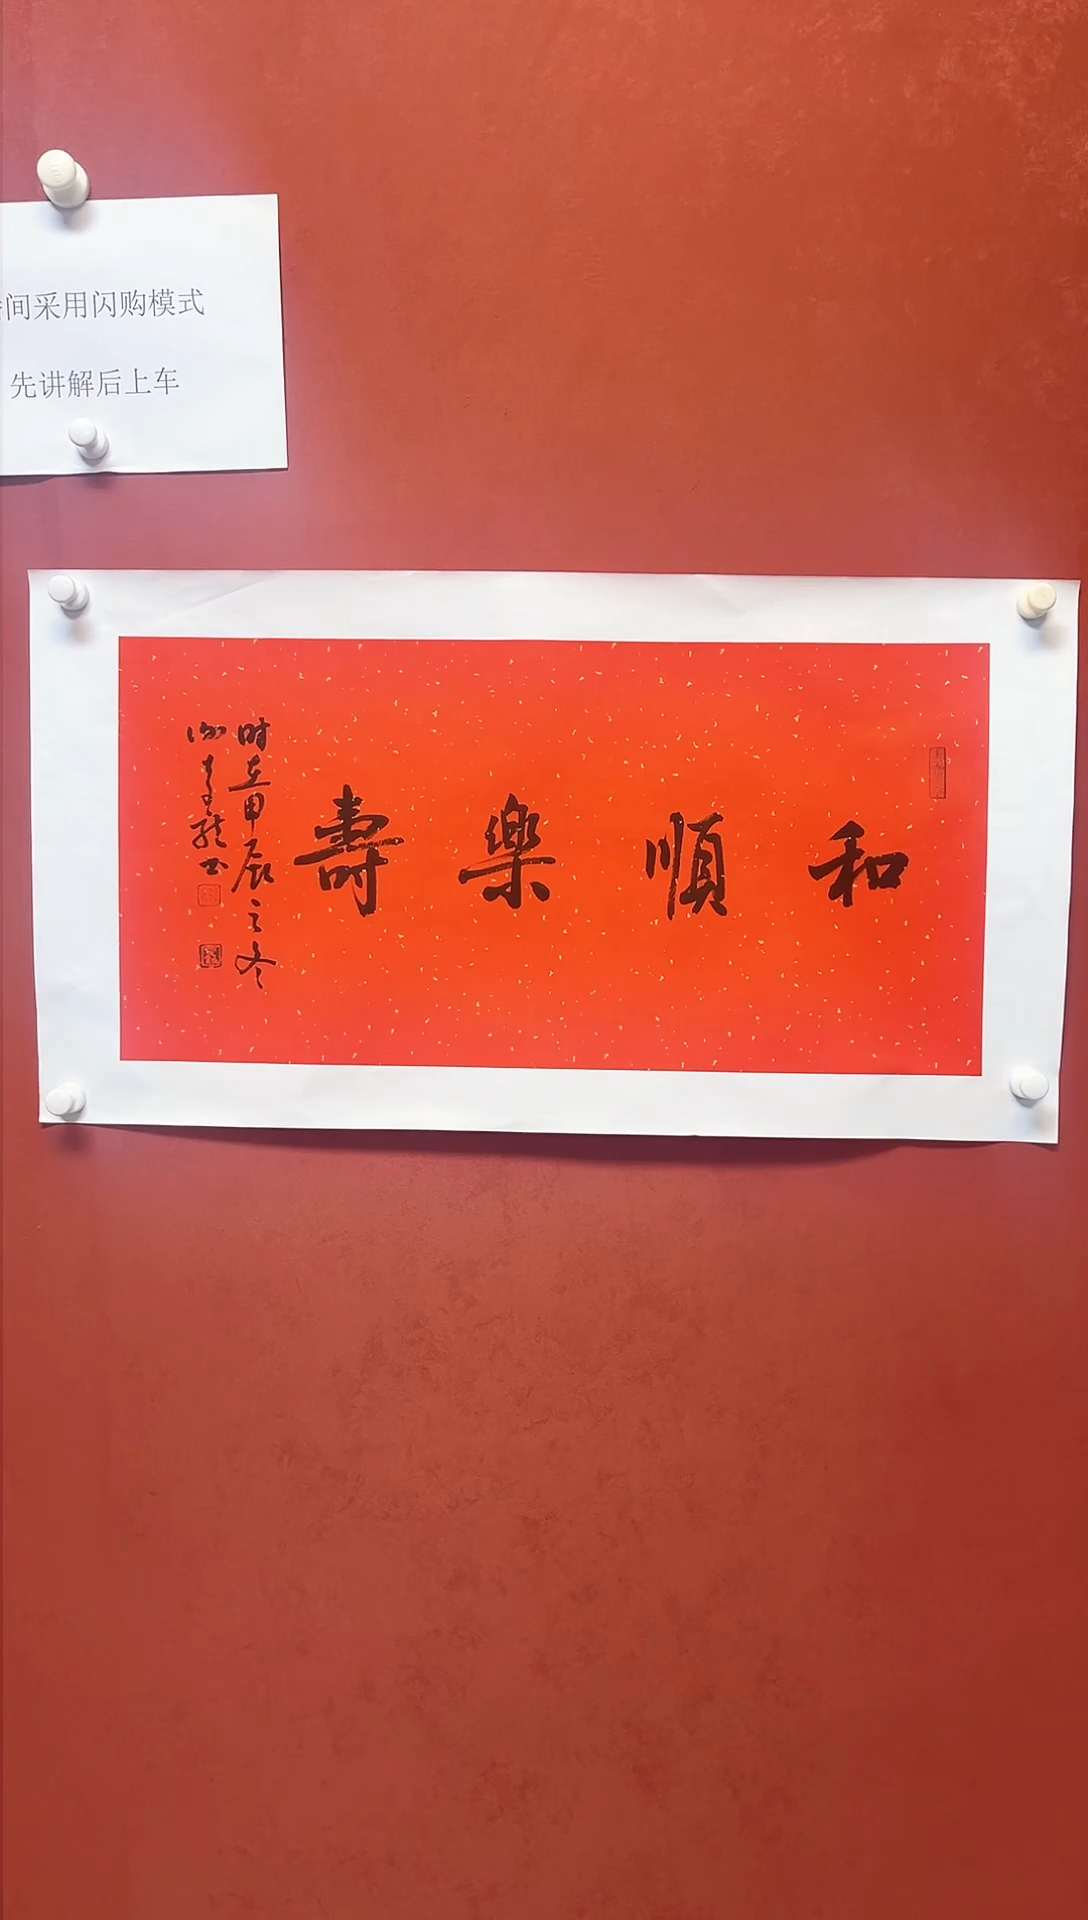 间采用闪购模式
先讲解后上车
和順樂壽
时在甲辰之冬
书